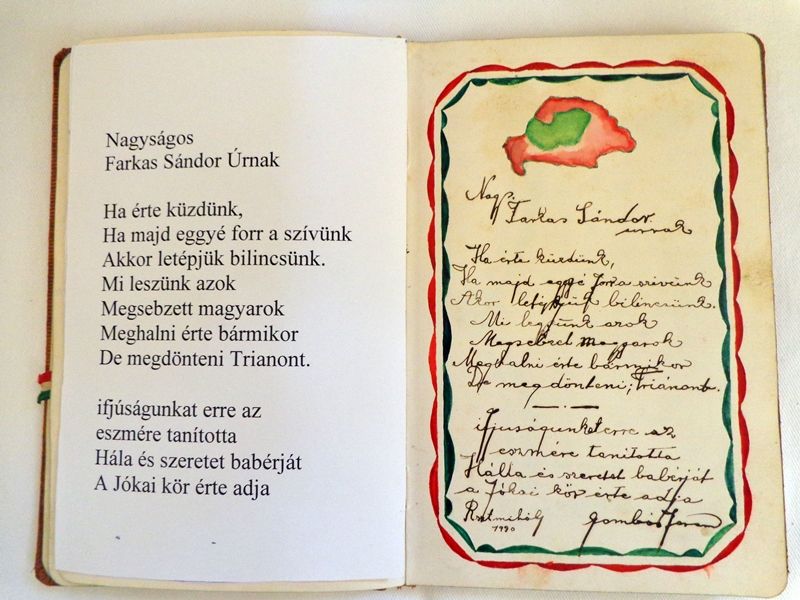 Nagyságos
Farkas Sándor Úrnak
Ha érte küzdünk,
Ha majd eggyé forr a szívünk
Akkor letépjük bilincsünk.
Mi leszünk azok
Megsebzett magyarok
Meghalni érte bármikor
De megdönteni Trianont.
ifjúságunkat erre az
eszmére tanította
Hála és szeretet babérját
A Jókai kör érte adja
Nag.
Farkas Sándor.
urnak
Ha érte küzdünk,
Ha majd eggyé forra szivünk
Akor letépjük bilincsünk.
Mi leszünk azok
Megsebzet magyarok
Meghalni érte bármikor
De meg dönteni, Triánont.
ifjuságunket erre az
eszmére tanította
Hálla és szeretet babérját
a Jókai kör érte adja
1930